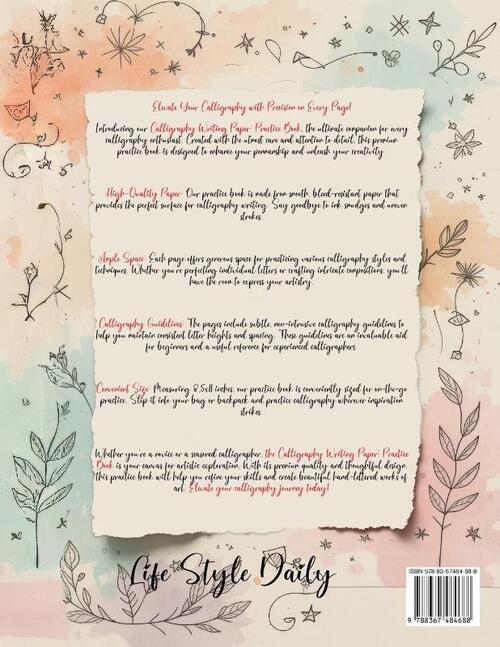 Elevate Your Calligraphy with Precision on Every Page!
Introducing our Calligraphy Writing Paper: Practice Book, the ultimate companion for every
calligraphy enthusiast. Created with the utmost care and attention to detail, this premium
practice book is designed to enhance your penmanship and unleash your creativity.
High-Quality Paper: Our practice book is made from smooth, bleed-resistant paper that
provides the perfect surface for calligraphy writing. Say goodbye to ink smudges and uneven
strokes.
Ample Space: Each page offers generous space for practicing various calligraphy styles and
techniques. Whether you're perfecting individual letters or crafting intricate compositions, you'll
have the room to express your artistry.
Calligraphy Guidelines: The pages include subtle, non-intrusive calligraphy guidelines to
help you maintain consistent letter heights and spacing. These guidelines are an invaluable aid
for beginners and a useful reference for experienced calligraphers.
Convenient Size: Measuring 8.5x11 inches, our practice book is conveniently sized for on-the-go
practice. Slip it into your bag or backpack and practice calligraphy wherever inspiration
strikes.
Whether you're a novice or a seasoned calligrapher, the Calligraphy Writing Paper: Practice
Book is your canvas for artistic exploration. With its premium quality and thoughtful design,
this practice book will help you refine your skills and create beautiful hand-lettered works of
art. Elevate your calligraphy journey today!
Life Style Daily
ISBN 978-83-67484-68-8
9 788367 484688